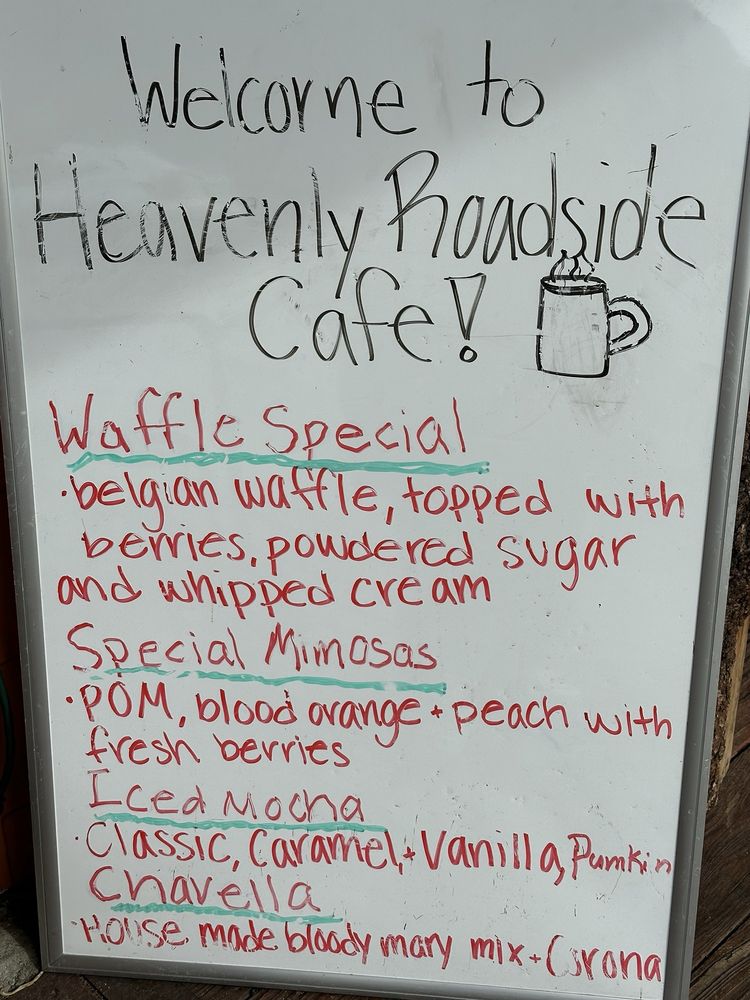 Welcome to
Heavenly Roadside
Cafe!
Waffle Special
·belgian waffle, topped with
berries, powdered sugar
and whipped cream
Special Mimosas
·POM, blood orange + peach with
fresh berries
Iced Mocha
·Classic, Caramel, + Vanilla, Pumkin
Chavella
·House made bloody mary mix + Corona